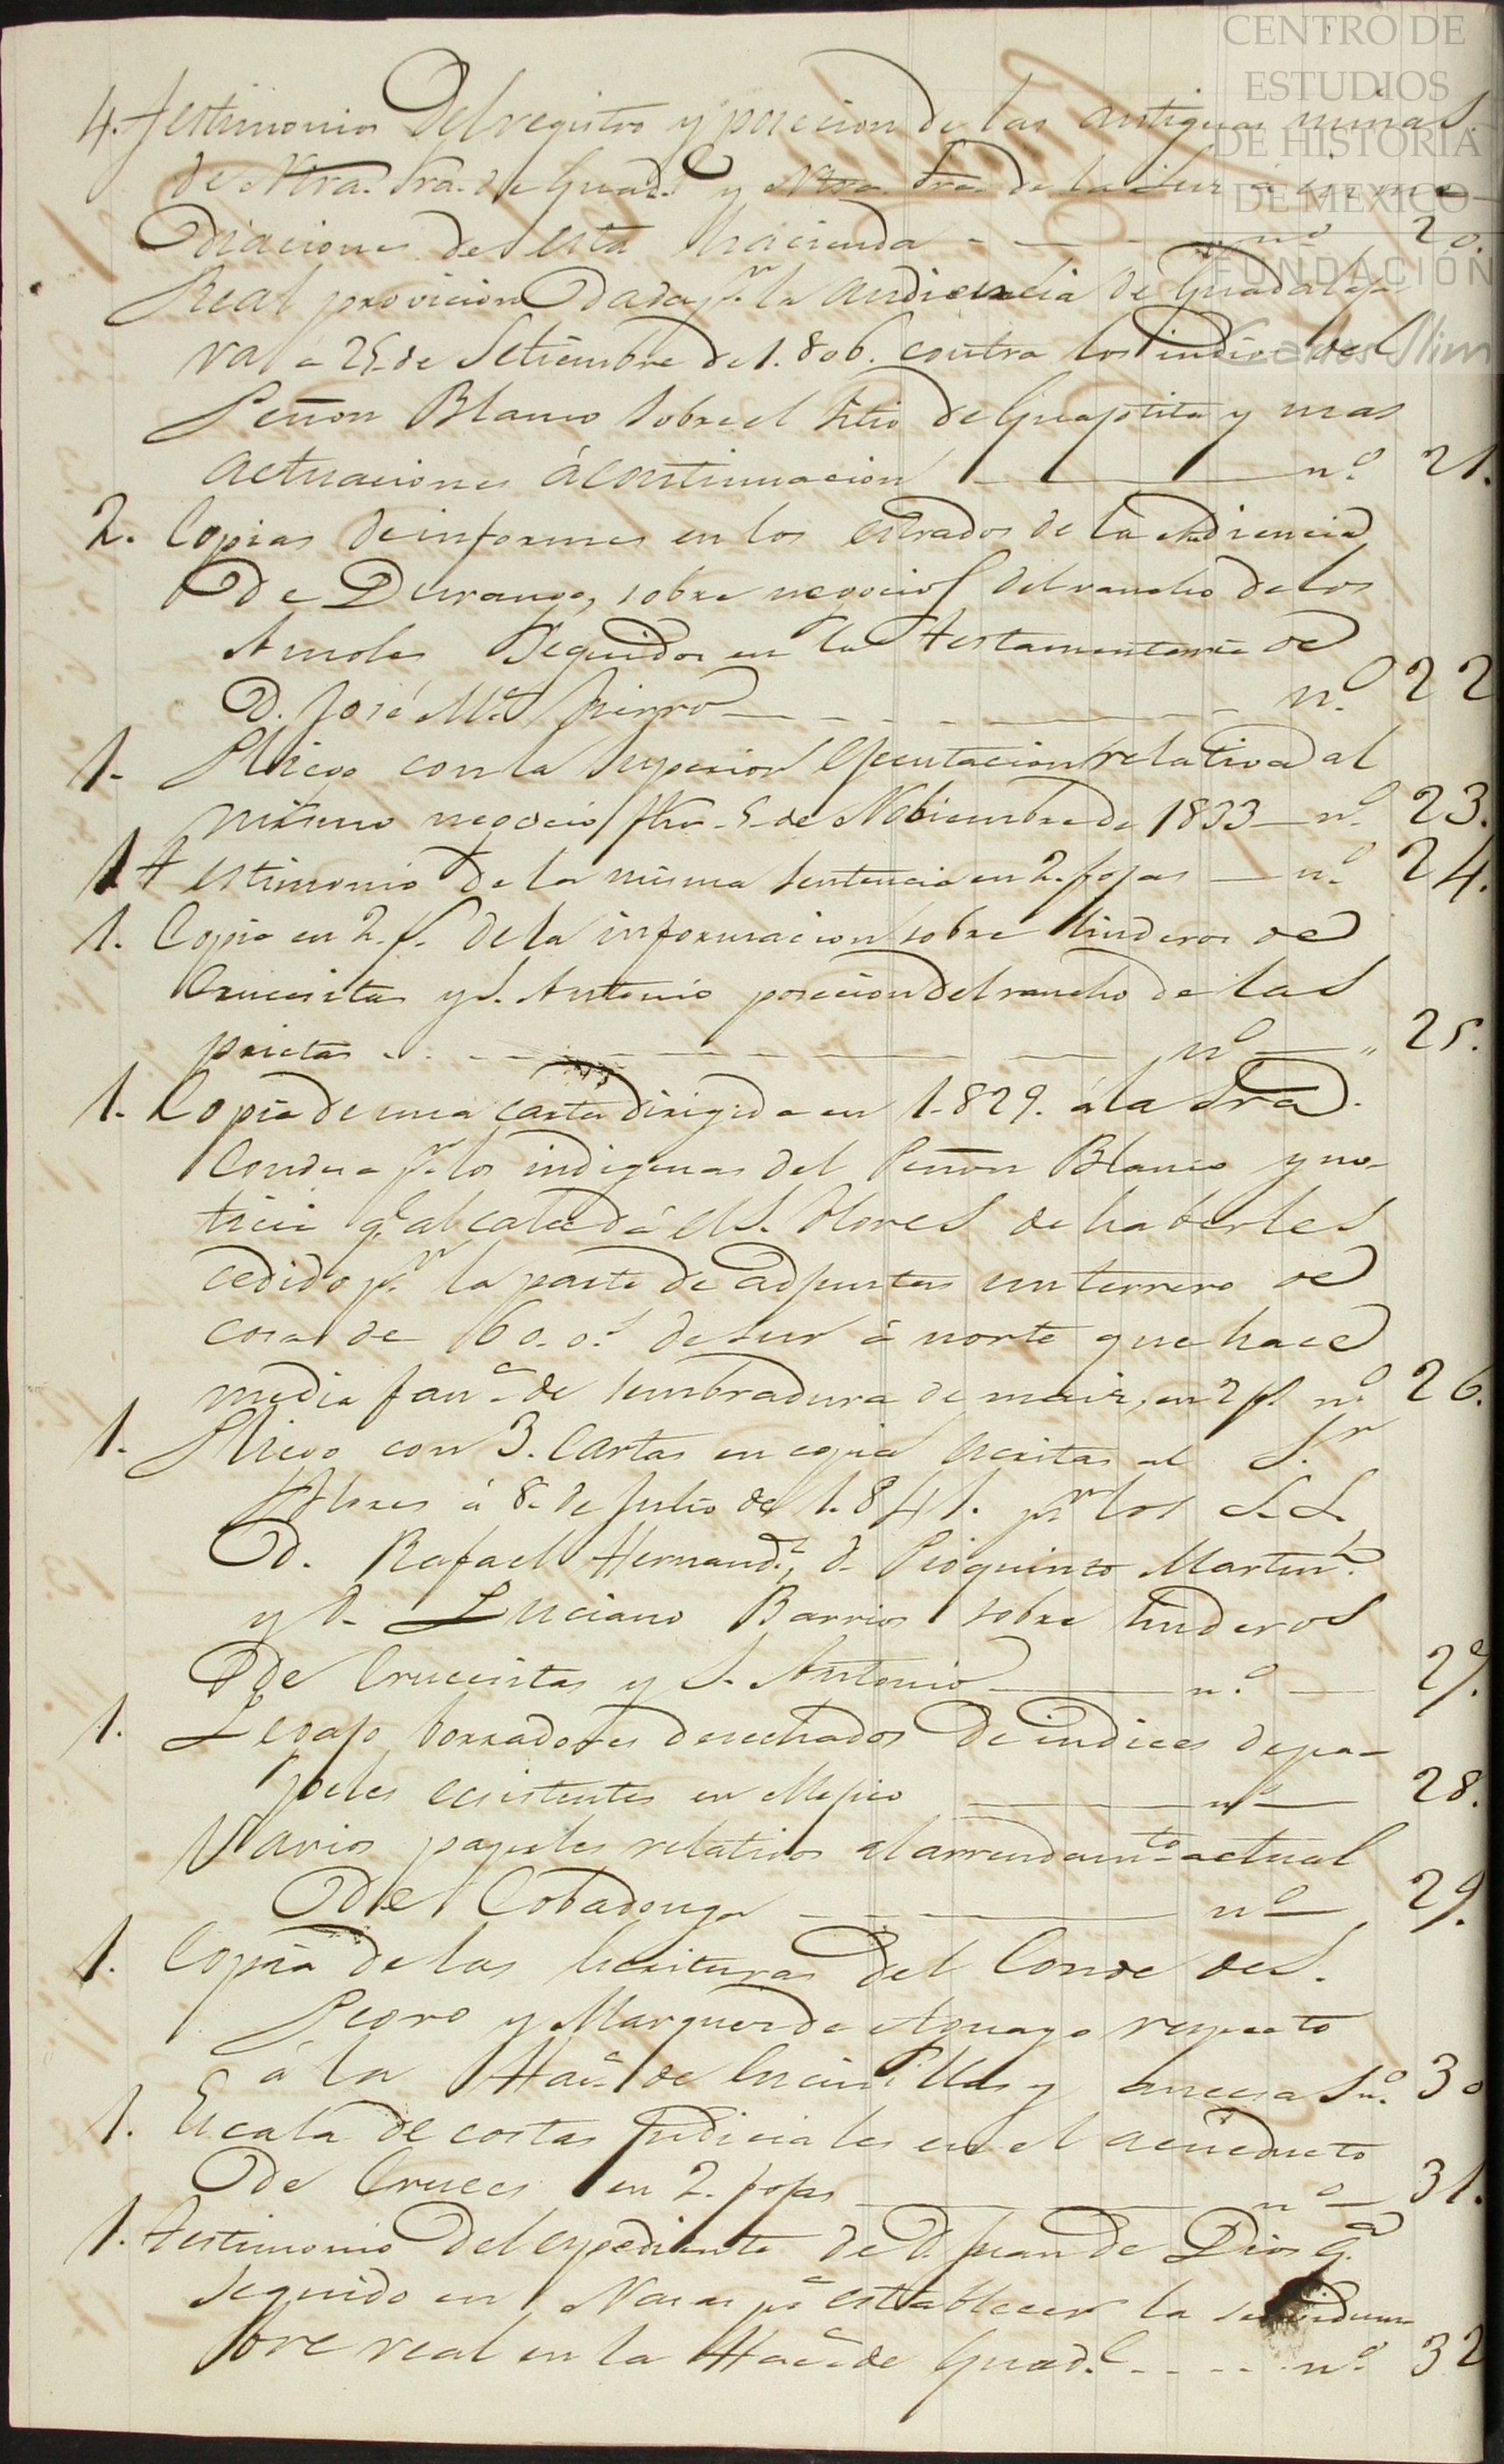 CENTRO DE
ESTUDIOS
DE HISTORIA
DE MEXICO
FUNDACIÓN
Carlos Slim
4. Testimonios del registro y posecion de las antiguas minas
de Ntra. Sra. de Guad.e y Ntra. Sra. de la Luz a inme-
diaciones de esta hacienda - - - n.o 20.
Real provicion dada p.r la audiencia de Guadalaja-
ra a 25 de Setiembre de 1.806. contra los indios del
Peñon Blanco sobre el sitio de Guapitita y mas
actuaciones á continuacion n.o 21.
2. Copias de informes en los estrados de la Audiencia
de Durango, sobre negocios del rancho de los
Amoles seguidos en la testamentaria de
D. José M.a n.o 22
1. Pliego con la superior ejecutacion relativa al
mismo negocio fha. 5 de Nobiembre de 1833 n.o 23.
1 Testimonio de la misma sentencia en 2. fojas n.o 24.
1. Copia en 2. f. de la informacion sobre linderos de
Crucesitas y S. Antonio posecion del rancho de las
prietas n.o 25.
1. Copia de una carta dirigida en 1.829. á la Sra.
Condesa p.r los indigenas del Peñon Blanco y no-
ticia q.e al calce dá el S. Flores de haberles
cedido p.r la parte de adjuntas un terreno de
cosa de 60. v.s de sur á norte que hace
media fan.a de sembradura de maiz, en 2 f. n.o 26.
1. Pliego con 3. cartas en copia escritas al S.r
Flores á 8. de Julio de 1.841. p.r los S.S.
D. Rafael Hernand.z, D. Pioquinto Martin.z
y D. Luciano Barrios sobre linderos
de Crucesitas y S. Antonio n.o 27.
1. Legajo borradores desechados de indices de pa-
peles ecsistentes en Mejico n.o 28.
Varios papeles relativos al arrendam.to actual
de Cobadonga n.o 29.
1. Copia de las escrituras del Conde de S.
Pedro y Marques de Aguayo respecto
á la Hac.a de Encinillas y anecsas n.o 30
1. Escala de costas judiciales en el acueducto
de Cruces en 2. fojas n.o 31.
1. Testimonio del espediente de D. Juan de Dios G.a
seguido en Nasas p.a establecer la servidum
bre real en la Hac.a de Guad.e n.o 32